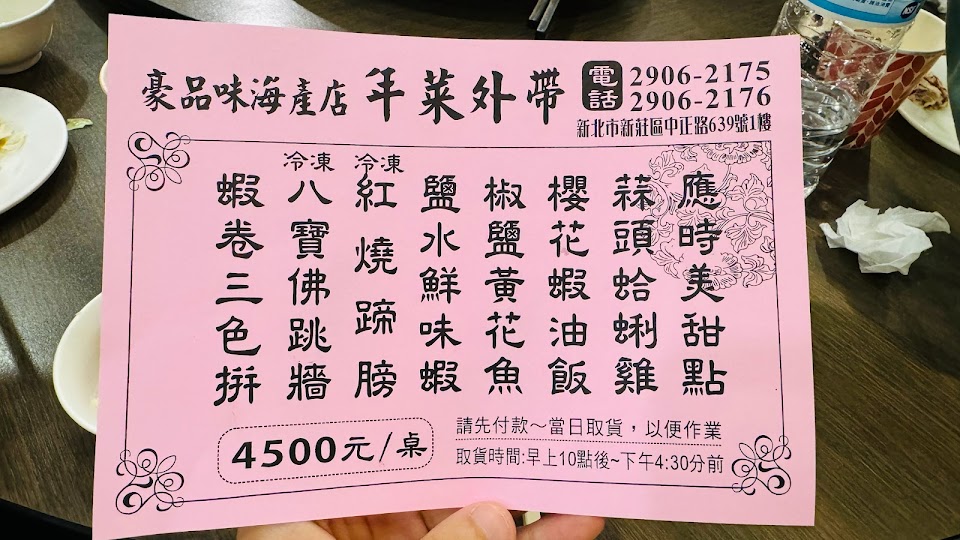 豪品味海產店 年菜外帶
電話 2906-2175
2906-2176
新北市新莊區中正路639號1樓
蝦卷三色拼
冷凍
八寶佛跳牆
冷凍
紅燒蹄膀
鹽水鮮味蝦
椒鹽黃花魚
櫻花蝦油飯
蒜頭蛤蜊雞
應時美甜點
4500元/桌
請先付款～當日取貨，以便作業
取貨時間:早上10點後~下午4:30分前